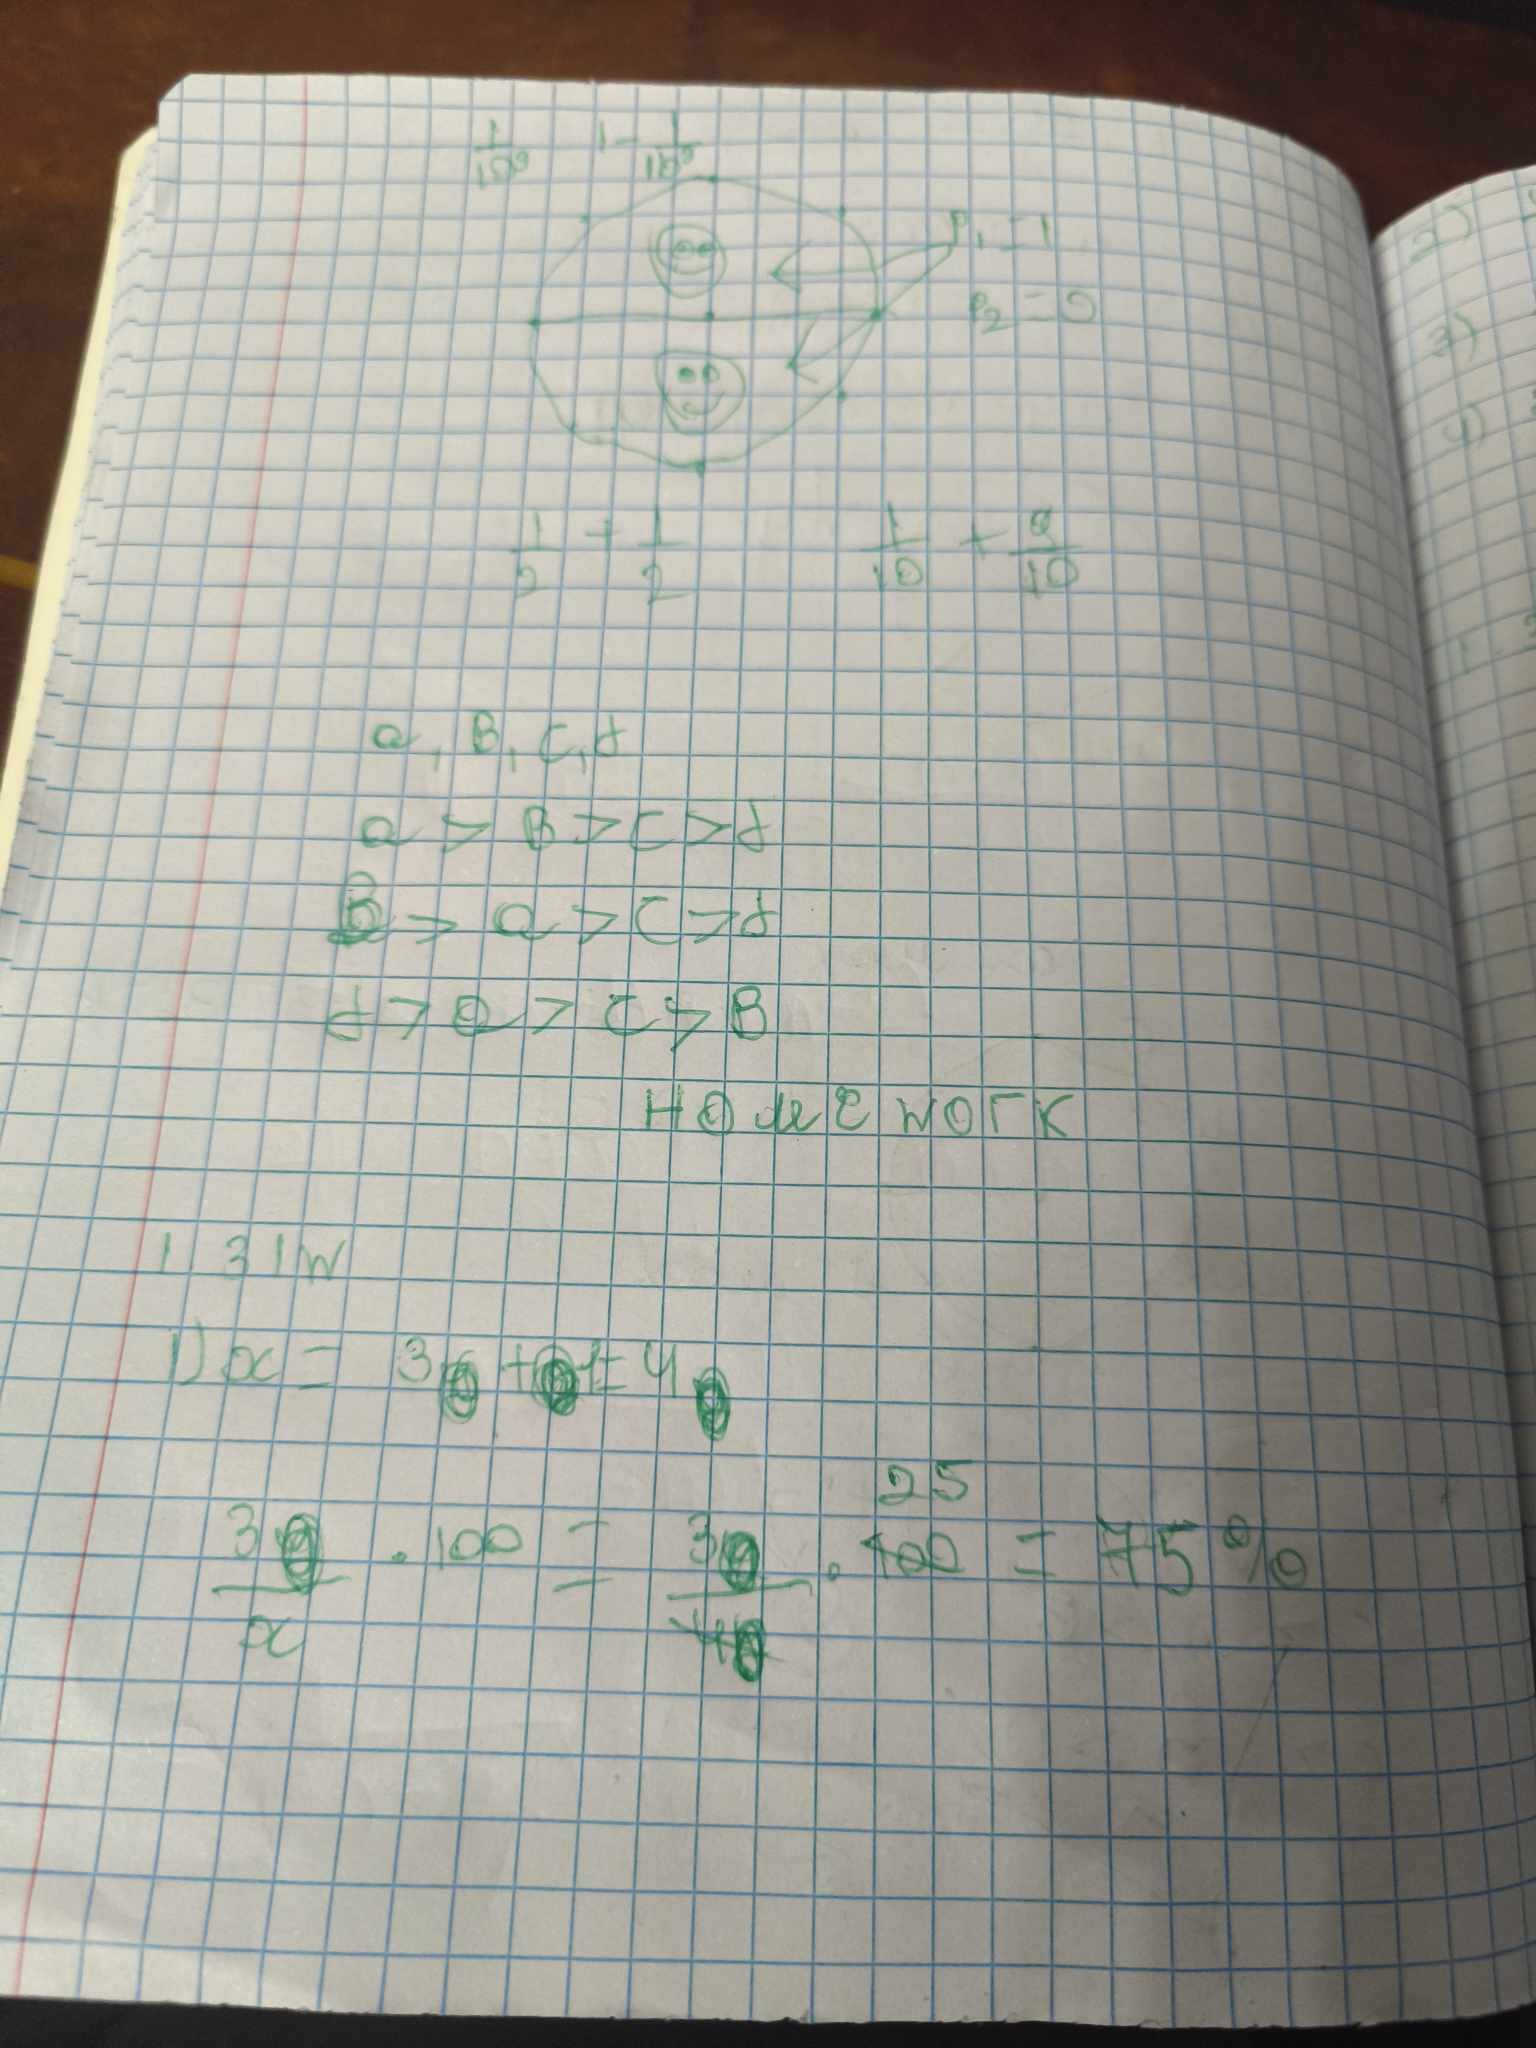 1/10⁹ 1 - 1/10⁹
P₁ = 1
P₂ = 0
1/2 + 1/2 1/10 + 9/10
a, B, c, d
a > B > c > d
B > a > c > d
d > a > c > B
Homework
1 31W
1) x = 3 + 1 = 4
25
3/x · 100 = 3/4 · 100 = 75%
2)
3)
4)
1.